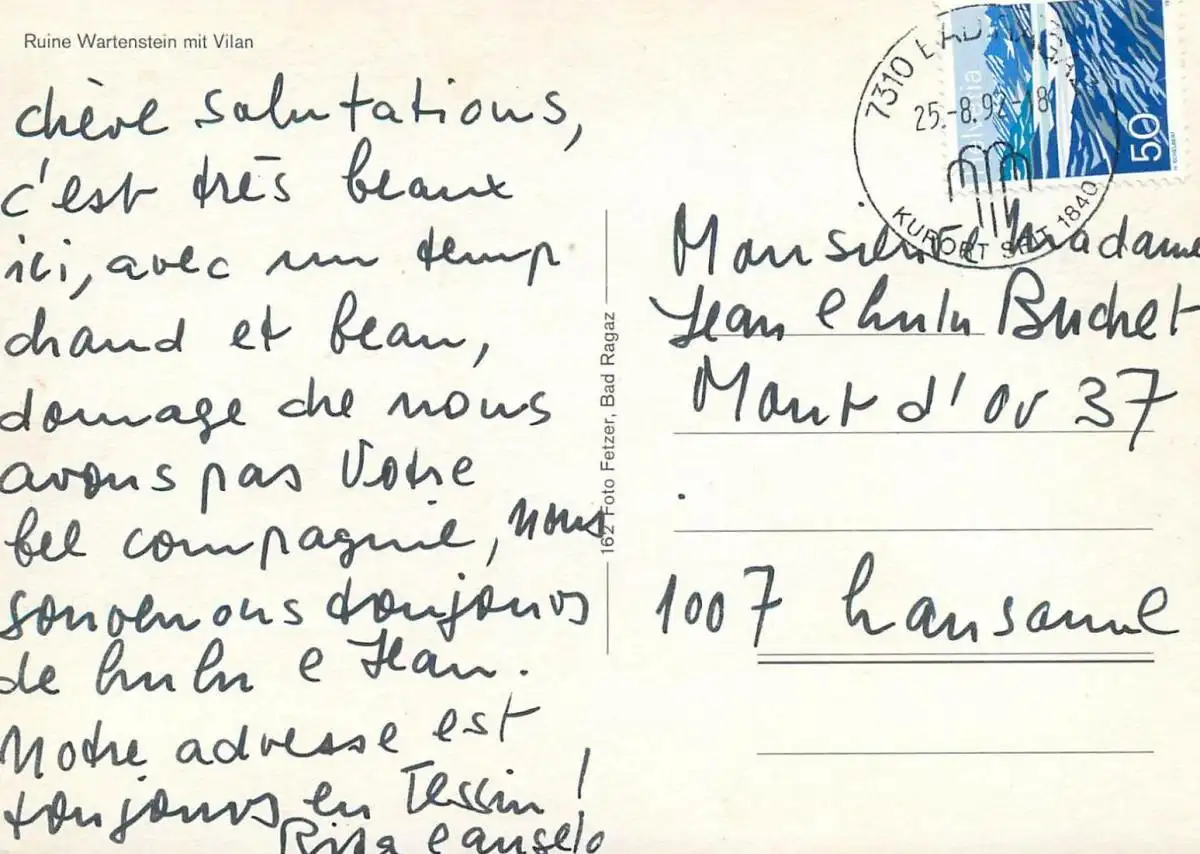 Ruine Wartenstein mit Vilan
chère salutations,
c'est très beaux
ici, avec un temp
chaud et beau,
domage che nous
avons pas Votre
bel compagnie, nous
souvenons toujours
de Lulu e Jean.
Notre adresse est
toujours en Tessin!
Rita e angelo
162 Foto Fetzer, Bad Ragaz
7310 BAD RAGAZ
25.-8.92-18
KURORT SEIT 1840
helvetia
50
Monsieur e Madame
Jean e Lulu Buchet
Mont d'Or 37
1007 Lausanne